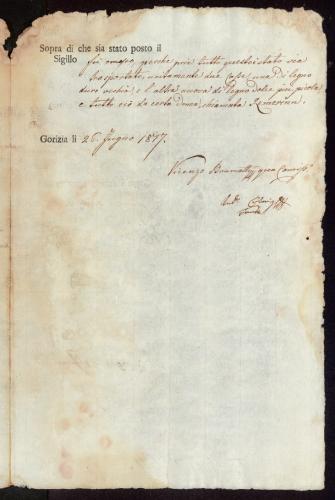 Sopra di che sia stato posto il
Sigillo fù omesso, perche pria tutto questo è stato via
trasportato, unitamente due Casse una di legno
duro vechia, e l'altra ancora di legno dolce più picola
e tutto ciò da certa donna chiamata
Gorizia li 26. Giugno 1817.
Vicenzo